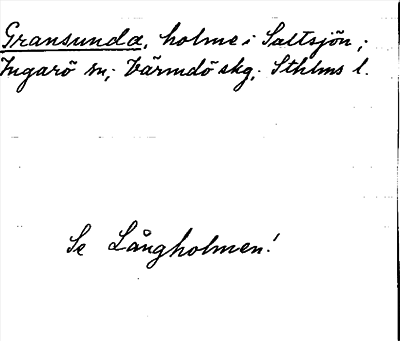 Gransunda, holme i Saltsjön;
Ingarö sn; Värmdö skg; Sthlms l.
Se Långholmen!